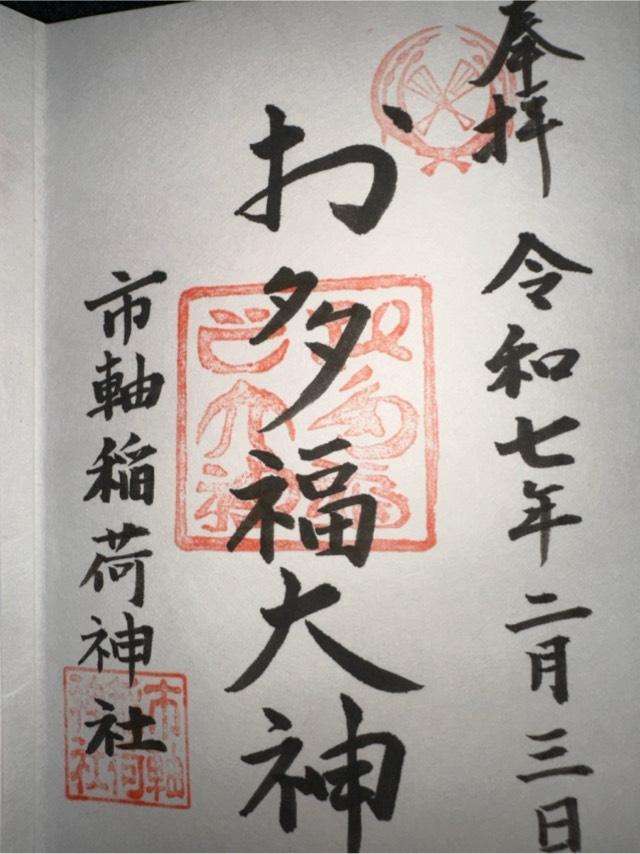 奉拝
令和七年二月三日
お多福大神
市軸稲荷神社
市軸稲荷神社